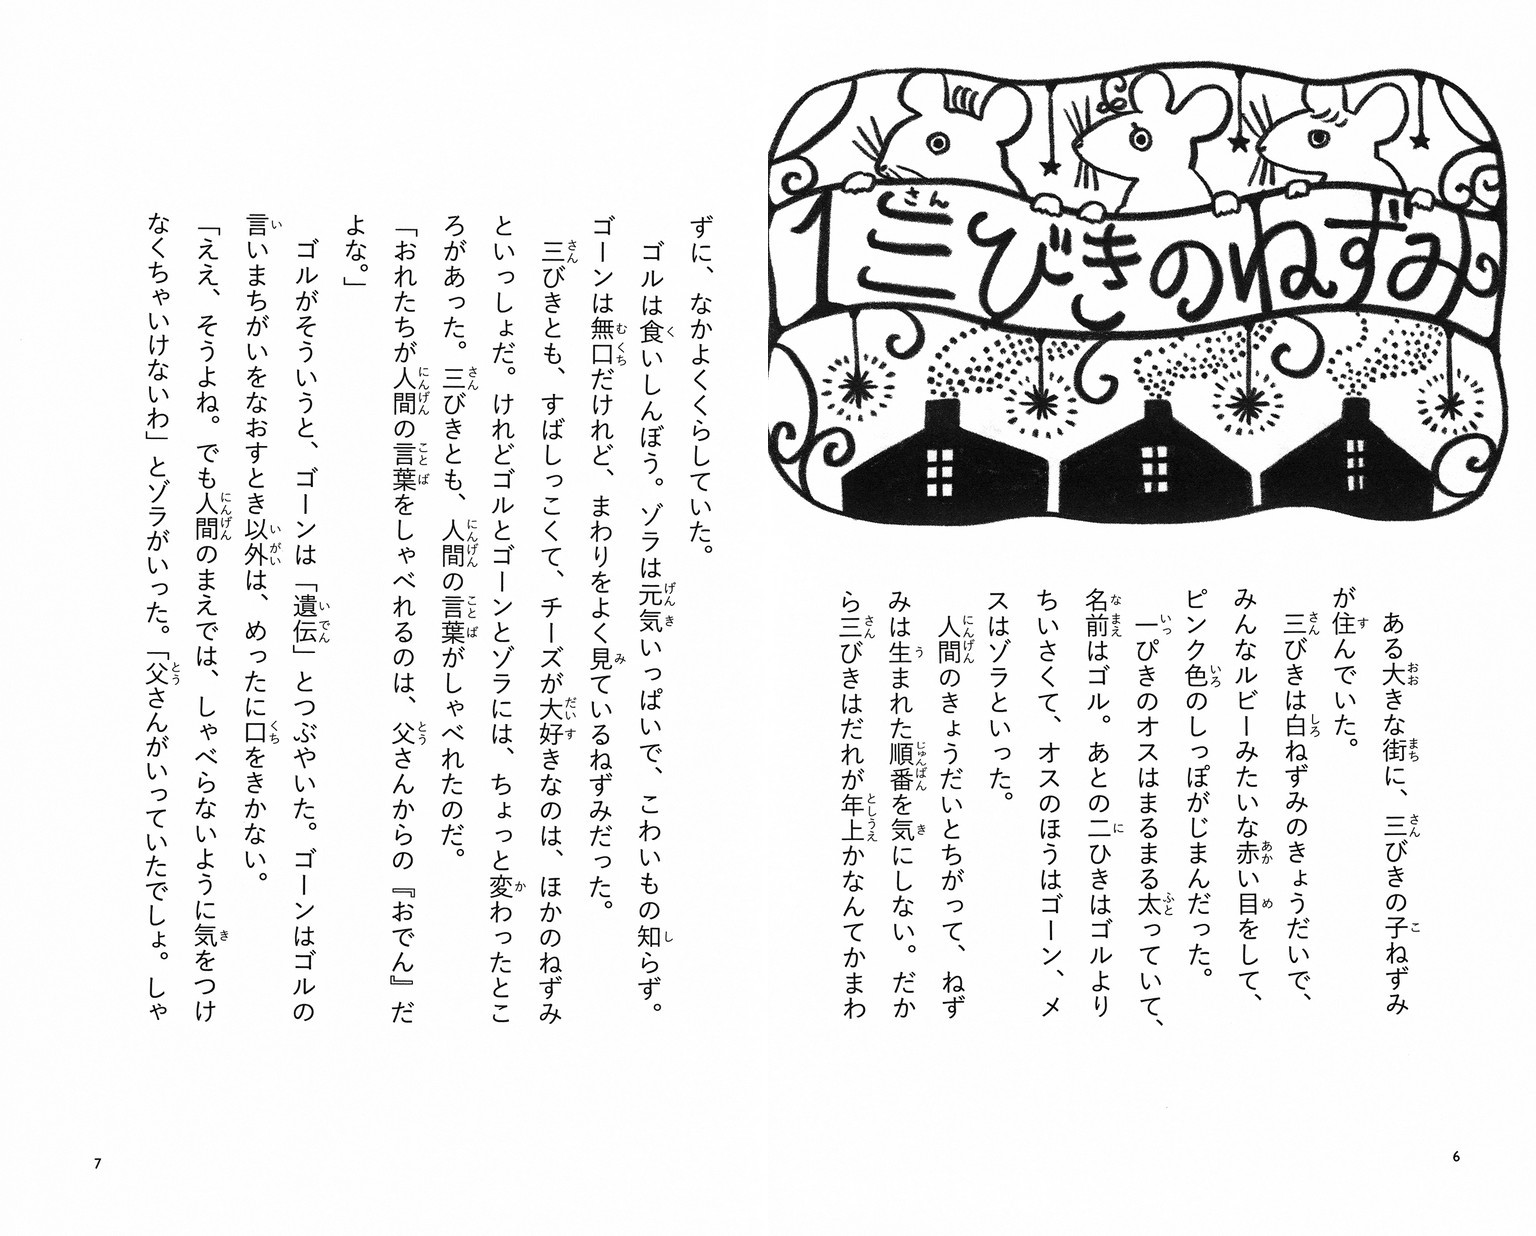 1 三びきのねずみ
さん
ある大きな街に、三びきの子ねずみ
が住んでいた。
三びきは白ねずみのきょうだいで、
みんなルビーみたいな赤い目をして、
ピンク色のしっぽがじまんだった。
一ぴきのオスはまるまる太っていて、
名前はゴル。あとの二ひきはゴルより
ちいさくて、オスのほうはゴーン、メ
スはゾラといった。
人間のきょうだいとちがって、ねず
みは生まれた順番を気にしない。だか
ら三びきはだれが年上かなんてかまわ
6
ずに、なかよくくらしていた。
ゴルは食いしんぼう。ゾラは元気いっぱいで、こわいもの知らず。
ゴーンは無口だけれど、まわりをよく見ているねずみだった。
三びきとも、すばしっこくて、チーズが大好きなのは、ほかのねずみ
といっしょだ。けれどゴルとゴーンとゾラには、ちょっと変わったとこ
ろがあった。三びきとも、人間の言葉がしゃべれたのだ。
「おれたちが人間の言葉をしゃべれるのは、父さんからの『おでん』だ
よな。」
ゴルがそういうと、ゴーンは「遺伝」とつぶやいた。ゴーンはゴルの
言いまちがいをなおすとき以外は、めったに口をきかない。
「ええ、そうよね。でも人間のまえでは、しゃべらないように気をつけ
なくちゃいけないわ」とゾラがいった。「父さんがいっていたでしょ。しゃ
7